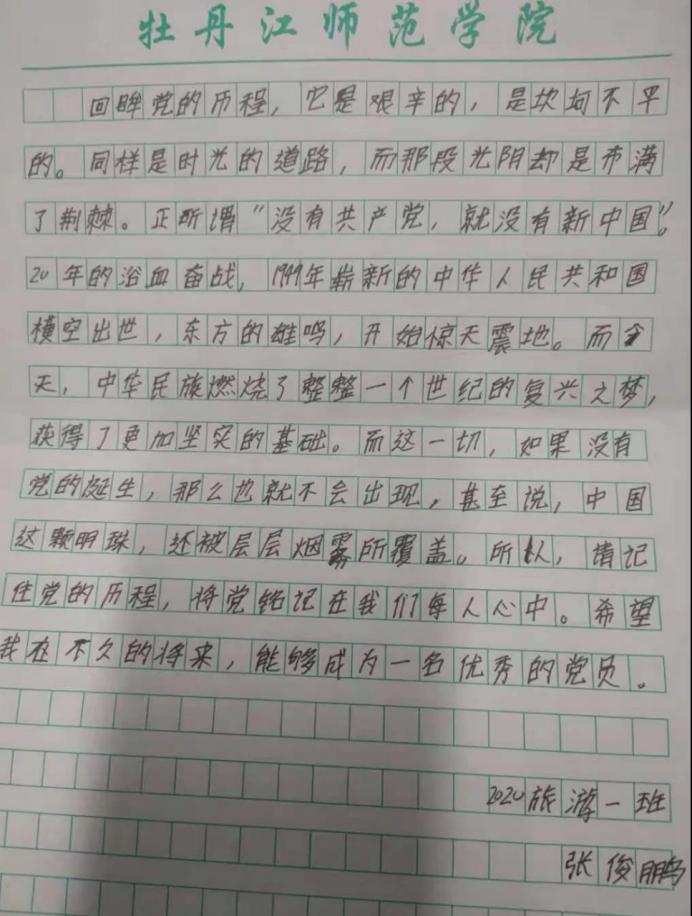 牡丹江师范学院
回眸党的历程，它是艰辛的，是坎坷不平
的。同样是时光的道路，而那段光阴却是布满
了荆棘。正所谓“没有共产党，就没有新中国”。
20年的浴血奋战，1949年崭新的中华人民共和国
横空出世，东方的雄鸣，开始惊天震地。而今
天，中华民族燃烧了整整一个世纪的复兴之梦，
获得了更加坚实的基础。而这一切，如果没有
党的诞生，那么也就不会出现，甚至说，中国
这颗明珠，还被层层烟雾所覆盖。所以，请记
住党的历程，将党铭记在我们每人心中。希望
我在不久的将来，能够成为一名优秀的党员。
2020旅游一班
张俊鹏